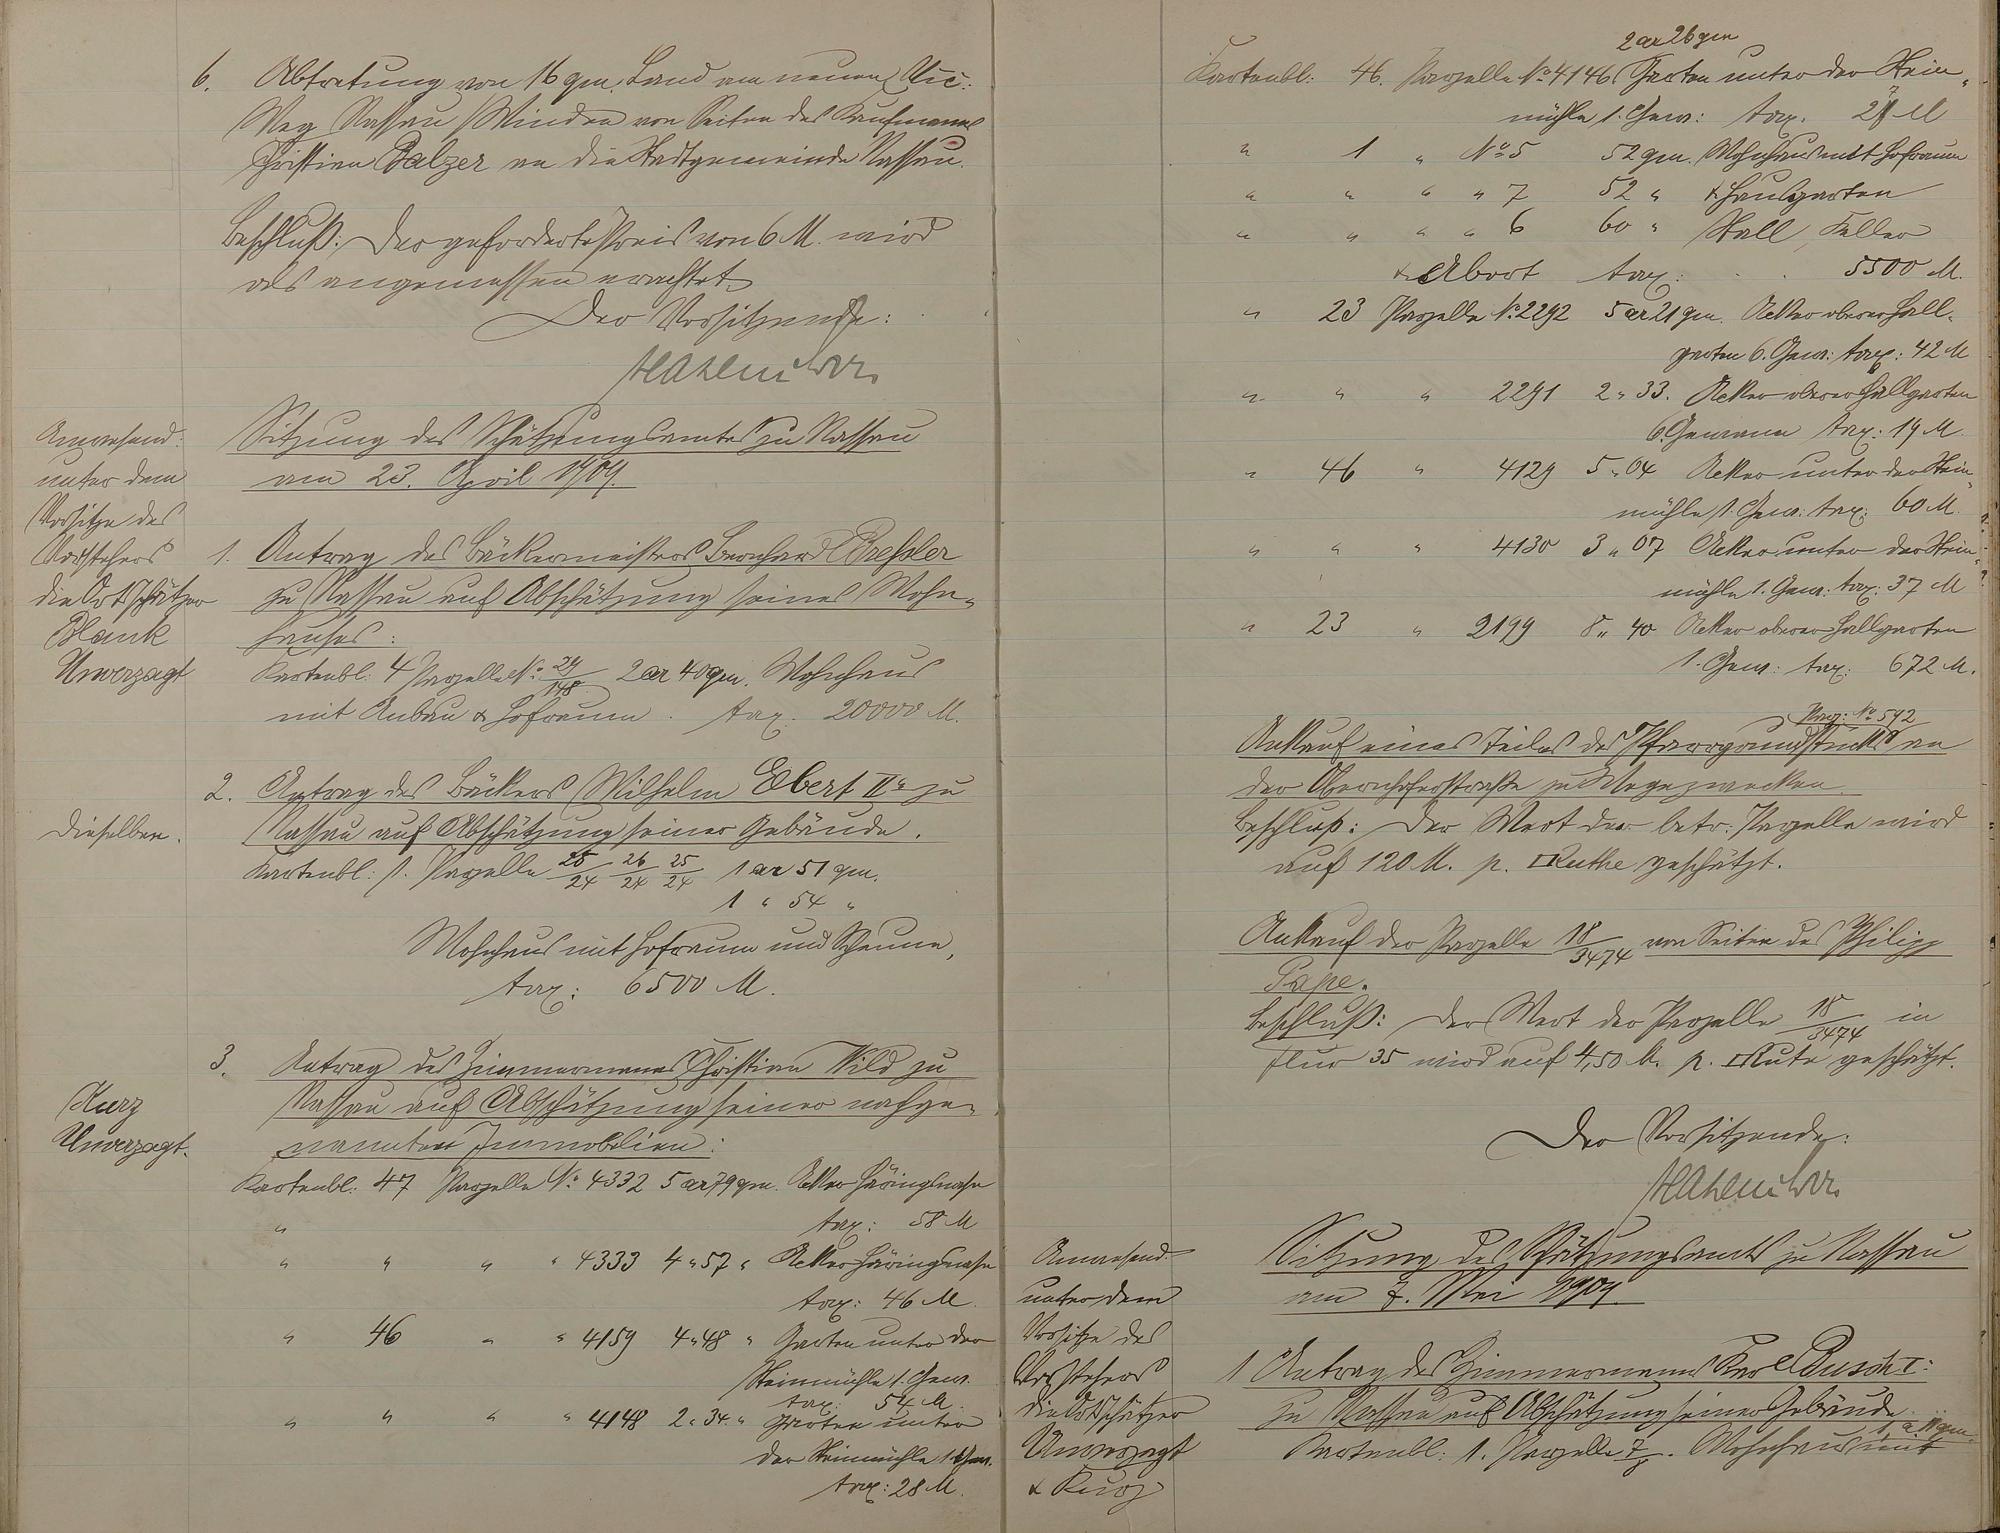 6. Abtretung von 16 qm. Land am neuen Vic:
Weg Nassau/Winden von Seiten des Kaufmanns
Christian Balzer an die Stadtgemeinde Nassau.
Beschluß: Der geforderte Preis von 6 M. wird
als angemessen erachtet.
Der Vorsitzende:
Anwesend:
unter dem
Vorsitze des
Vorstehers
die Ortsschätzer
Blank
Unverzagt
Sitzung des Schätzungsamtes zu Nassau
am 23. April 1909.
1. Antrag des Bäckermeisters Bernhard Bressler
zu Nassau auf Abschätzung seines Wohn-
hauses:
Kartenbl: 4 Parzelle No. 29/148 2 ar 40 qm. Wohnhaus
mit Anbau & Hofraum. tax: 20000 M.
dieselben.
2. Antrag des Bäckers Wilhelm Elbert IIr zu
Nassau auf Abschätzung seiner Gebäude.
Kartenbl: 1. Parzelle 25/24 26/24 25/24 1 ar 51 qm.
1 " 54 "
Wohnhaus mit Hofraum und Scheune,
tax: 6500 M.
Kurz
Unverzagt.
3. Antrag des Zimmermanns Christian Wild zu
Nassau auf Abschätzung seiner nachge-
nannten Immobilien:
Kartenbl: 47 Parzelle No. 4332 5 ar 79 qm. Acker Häringsnase
" tax: 58 M
" " " " 4333 4 " 57 " Acker Häringsnase
tax: 46 M.
" 46 " " 4159 4 " 48 " Garten unter der
Steinmühle 1. Gew.
tax: 54 M.
" " " " 4148 2 " 34 " Garten unter
der Steinmühle 1 Gew.
tax: 28 M.
2 ar 26 qm
Kartenbl: 46. Parzelle No 4146 Garten unter der Stein-
mühle 1. Gew: tax. 27 M
" 1 " No 5 52 qm. Wohnhaus mit Hofraum
" " " " 7 52 " & Hausgarten
" " " " 6 60 " Stall, Keller
& Abort tax: 5500 M.
" 23 Parzelle No. 2292 5 ar 21 qm. Acker oberer Hall-
garten 6. Gew: tax: 42 M
" " " 2291 2 " 33. Acker oberer Hallgarten
6. Gewann tax: 19 M.
" 46 " 4129 5 " 04 Acker unter der Stein-
mühle 1. Gew. tax: 60 M.
" " " 4130 3 " 07 Acker unter der Stein-
mühle 1. Gew: tax: 37 M
" 23 " 2199 8 " 40 Acker oberer Hallgarten
1. Gew: tax: 672 M.
Parz: No 592
Ankauf eines Teiles des Pfarrgrundstücks an
der Obernhoferstraße zu Wegezwecken.
Beschluß: Der Wert der betr. Parzelle wird
auf 120 M. p. □Ruthe geschätzt.
Ankauf der Parzelle 18/3474 von Seiten des Philipp
Pape.
Beschluß: Der Wert der Parzelle 18/3474 in
Flur 35 wird auf 4,50 M. p. □Rute geschätzt.
Der Vorsitzende:
Anwesend:
unter dem
Vorsitze des
Vorstehers
die Ortsschätzer
Unverzagt
& Kurz
Sitzung des Schätzungsamts zu Nassau
am 7. Mai 1909.
1 Antrag des Zimmermanns Karl Busch I:
zu Nassau auf Abschätzung seiner Gebäude.
Kartenbl: 1. Parzelle Wohnhaus mit